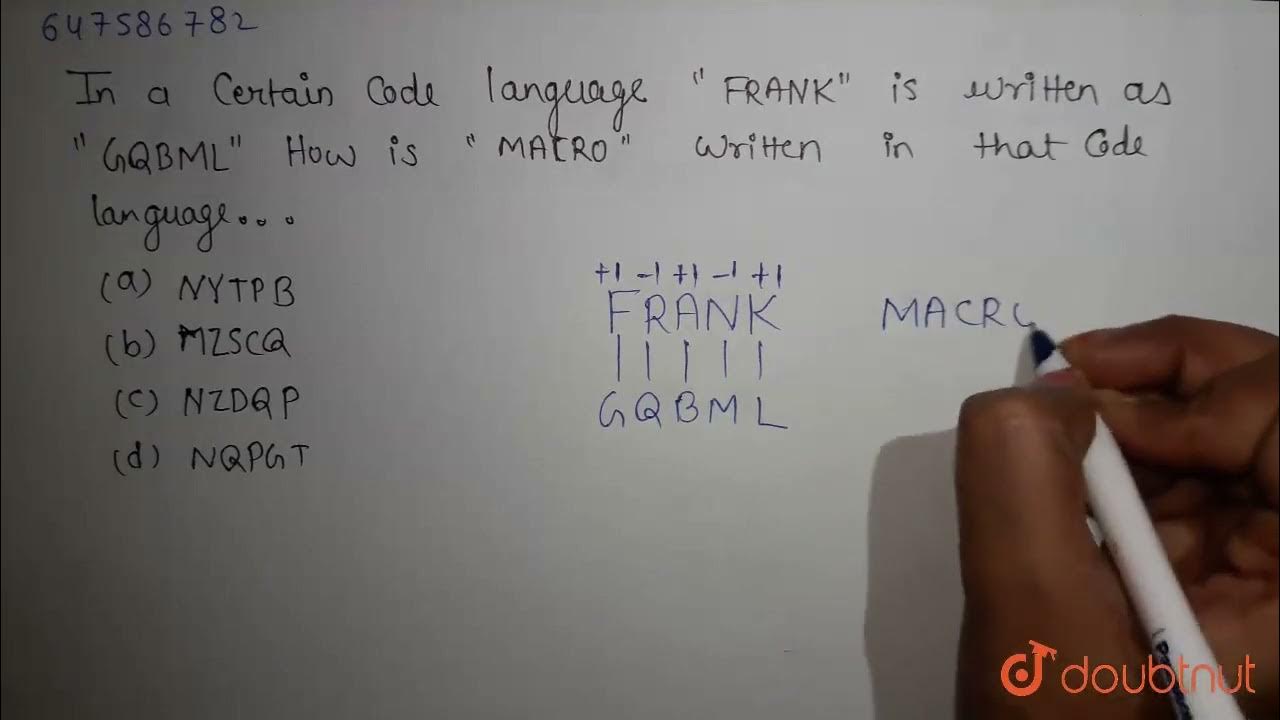 647586782
In a Certain Code language "FRANK" is written as
"GQBML" How is "MACRO" written in that Code
language...
(a) NYTPB
(b) MZSCQ
(c) NZDQP
(d) NQPGT
+1 -1 +1 -1 +1
FRANK
GQBML
MACRO
doubtnut